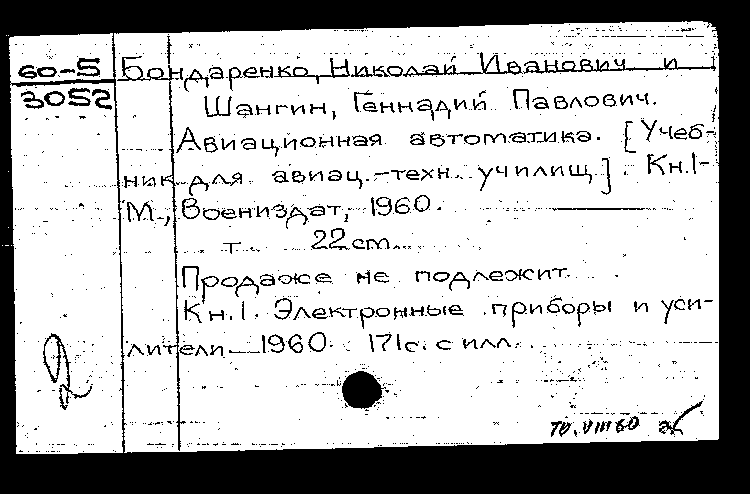 60-5 Бондаренко, Николай Иванович и
3052 Шангин, Геннадий Павлович.
Авиационная автоматика. [Учеб-
ник для авиац.-техн. училищ]. Кн.1-
М., Воениздат, 1960.
т. 22 см.
Продаже не подлежит.
Кн.1. Электронные приборы и уси-
лители. 1960. 171 с. с илл.
2